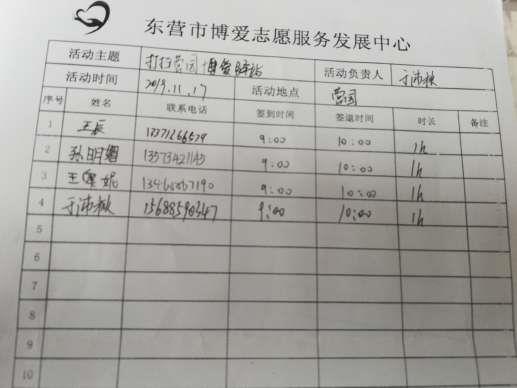 东营市博爱志愿服务发展中心
活动主题 博爱驿站 活动负责人 于沛秋
活动时间 2019.11.17 活动地点
序号 姓名 联系电话 签到时间 签退时间 时长 备注
1 9:00 10:00 1h
2 孙明 13573421143 9:00 10:00 1h
3 王 妮 9:00 10:00 1h
4 于沛秋 9:00 10:00 1h
5
6
7
8
9
10